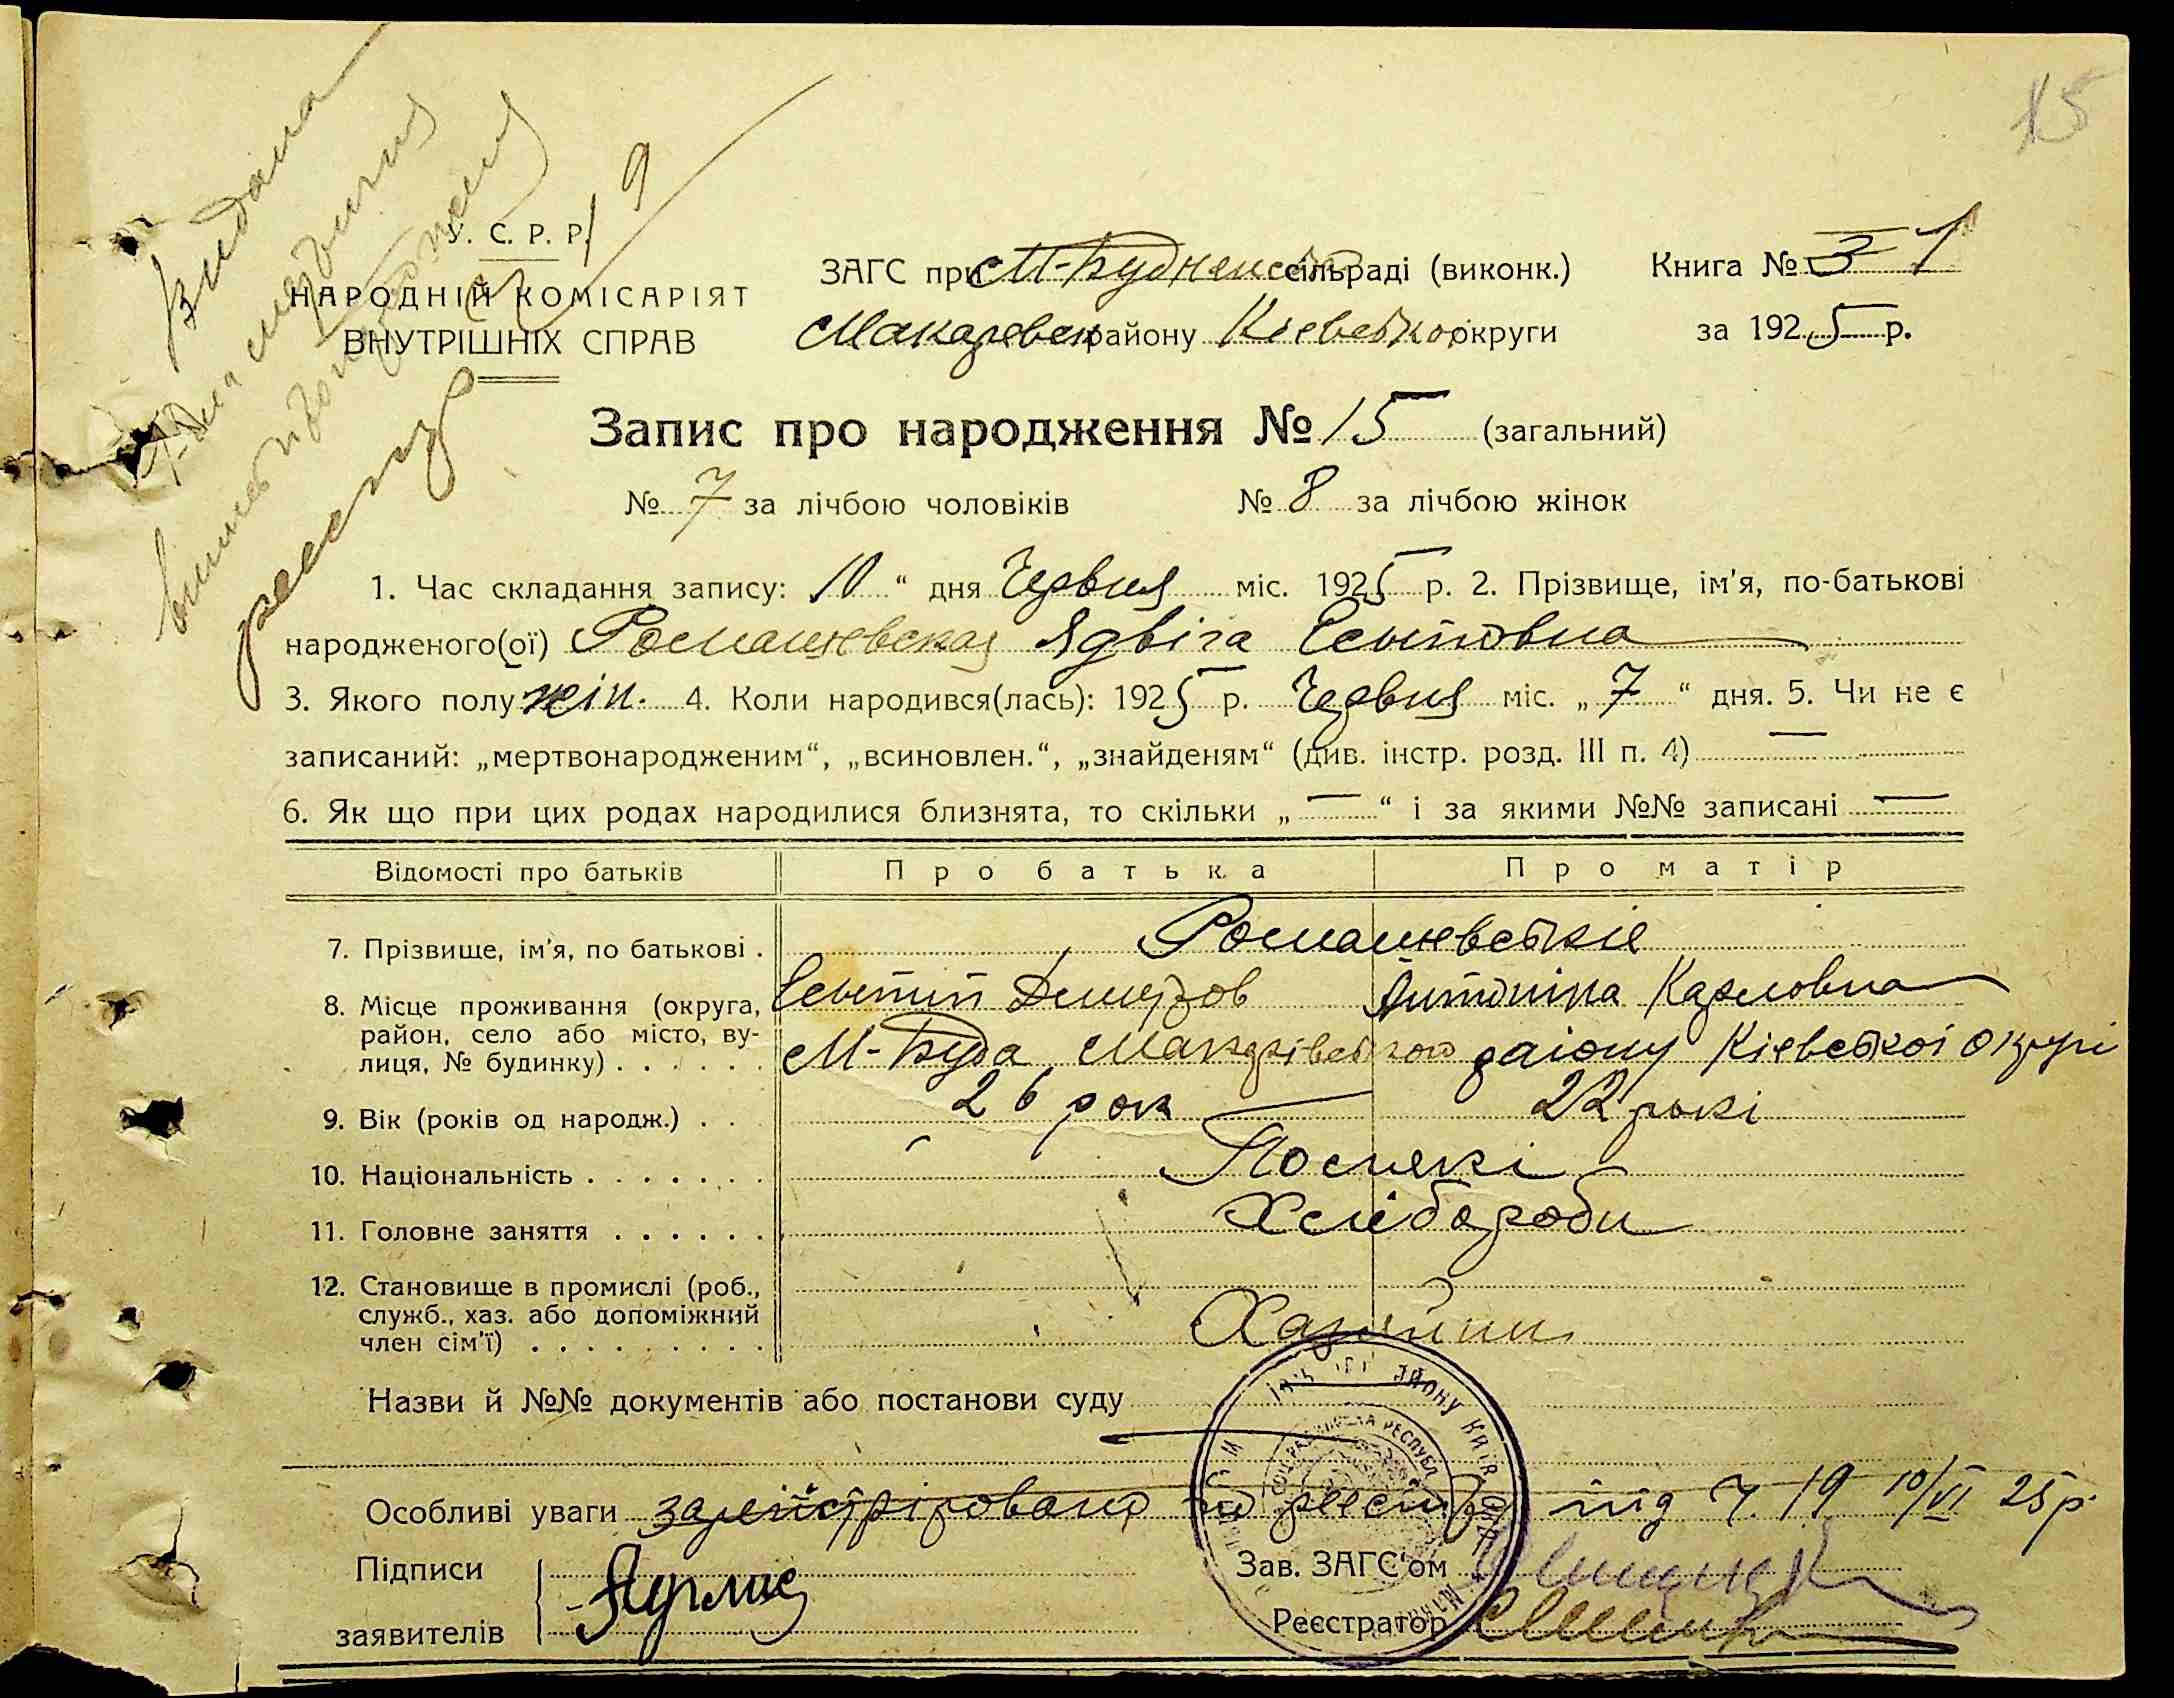 15
Видана
У. С. Р. Р.
НАРОДНІЙ КОМІСАРІЯТ
ВНУТРІШНІХ СПРАВ
ЗАГС при М-Буднян сільраді (виконк.) Книга № 3 1
Макаревск району Кіевської округи за 1925 р.
Запис про народження № 15 (загальний)
№ 7 за лічбою чоловіків № 8 за лічбою жінок
1. Час складання запису: 10 “ дня Червня міс. 1925 р. 2. Прізвище, ім'я, по-батькові
народженого(ої) Ромашевская Ядвіга
3. Якого полу жін. 4. Коли народився(лась): 1925 р. Червня міс. „ 7 “ дня. 5. Чи не є
записаний: „мертвонародженим“, „всиновлен.“, „знайденям“ (див. інстр. розд. III п. 4) —
6. Як що при цих родах народилися близнята, то скільки „ — “ і за якими №№ записані —
Відомості про батьків Про батька Про матір
7. Прізвище, ім'я, по батькові . Ромашевські
Антоніна Карловна
8. Місце проживання (округа, район, село або місто, вулиця, № будинку) . . . . . . М-Буда Макарівського раіону Кіевської округі
9. Вік (років од народж.) . . 26 рок 22 рокі
10. Національність . . . . . . . Полякі
11. Головне заняття . . . . . . Хліборобы
12. Становище в промислі (роб., служб., хаз. або допоміжний член сім'ї) . . . . . . . . . Хазяйни
Назви й №№ документів або постанови суду
Особливі уваги зареістріровано по реестру під ч. 19 10/VI 25 р.
Підписи
заявителів
Зав. ЗАГС'ом
Реєстратор